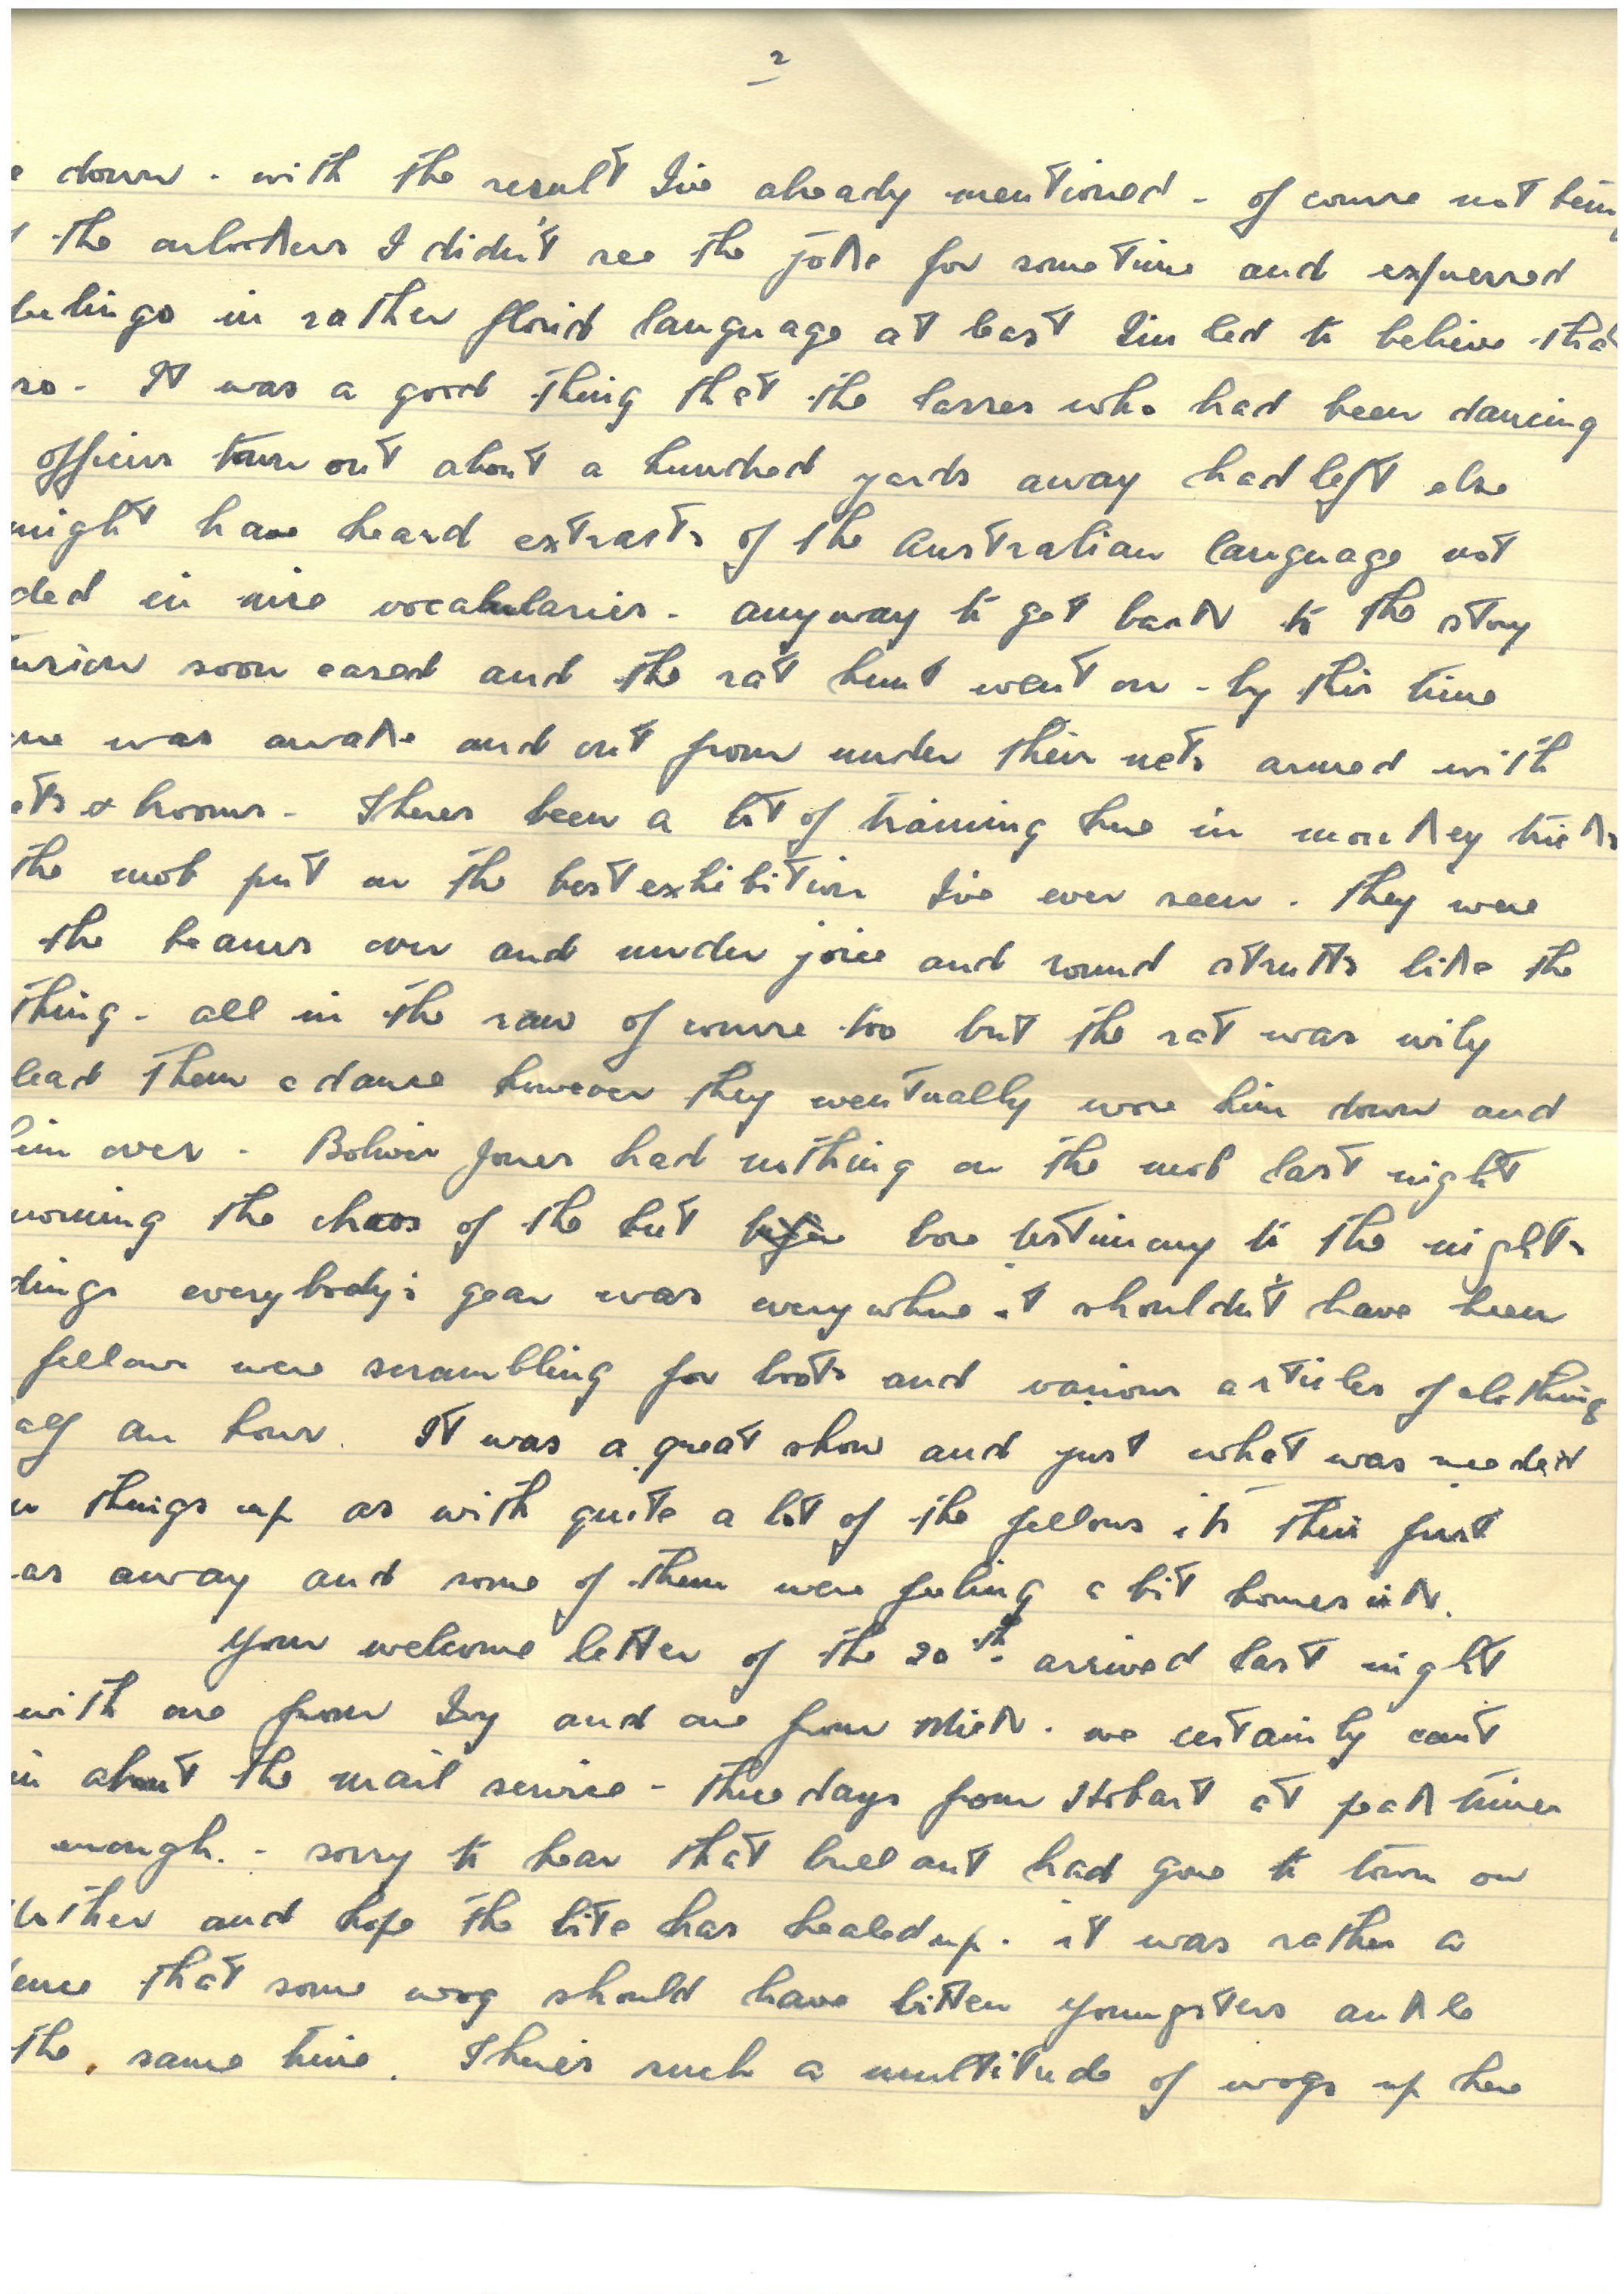 2
e down - with the result I've already mentioned - of course not being
the onlookers I didn't see the joke for sometime and expressed
feelings in rather florid language at least I'm led to believe that
so - It was a good thing that the lasses who had been dancing
officers turn out about a hundred yards away had left else
might have heard extracts of the Australian language not
ded in nice vocabularies - anyway to get back to the story
soon eased and the rat hunt went on - by this time
ne was awake and out from under their nets armed with
ets & brooms - Theres been a lot of training here in monkey tricks
the mob put on the best exhibition I've ever seen . they were
the beams over and under joice and round strutts like the
thing - all in the raw of course too but the rat was wily
lead them a dance however they eventually wore him down and
him over - Jones had nothing on the mob last night
morning the chaos of the hut bore testimony to the nights
dings everybody's gear was everywhere it shouldn't have been
fellows were scrambling for boots and various articles of clothing
alf an hour . It was a great show and just what was needed
things up as with quite a lot of the fellows its their first
as away and some of them were feeling a bit homesick.
Your welcome letter of the 20th arrived last night
with one from Ivy and one from Mick . we certainly can't
in about the mail service - three days from Hobart at peak times
enough. - sorry to hear that bull ant had gone to town on
Mother and hope the bite has healed up . it was rather a
ence that some wog should have bitten youngsters ankle
the same time . There's such a multitude of wogs up here